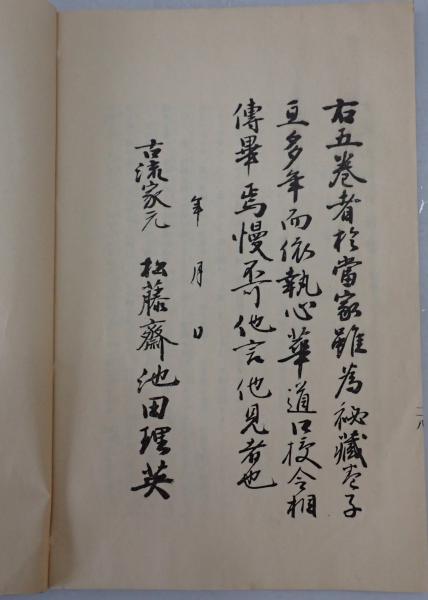 右五巻者於當家雖為秘藏之子
亘多年而依執心華道口授令相
傳畢焉慢不可他言他見者也
年月日
古流家元 松藤齋池田理英
二八